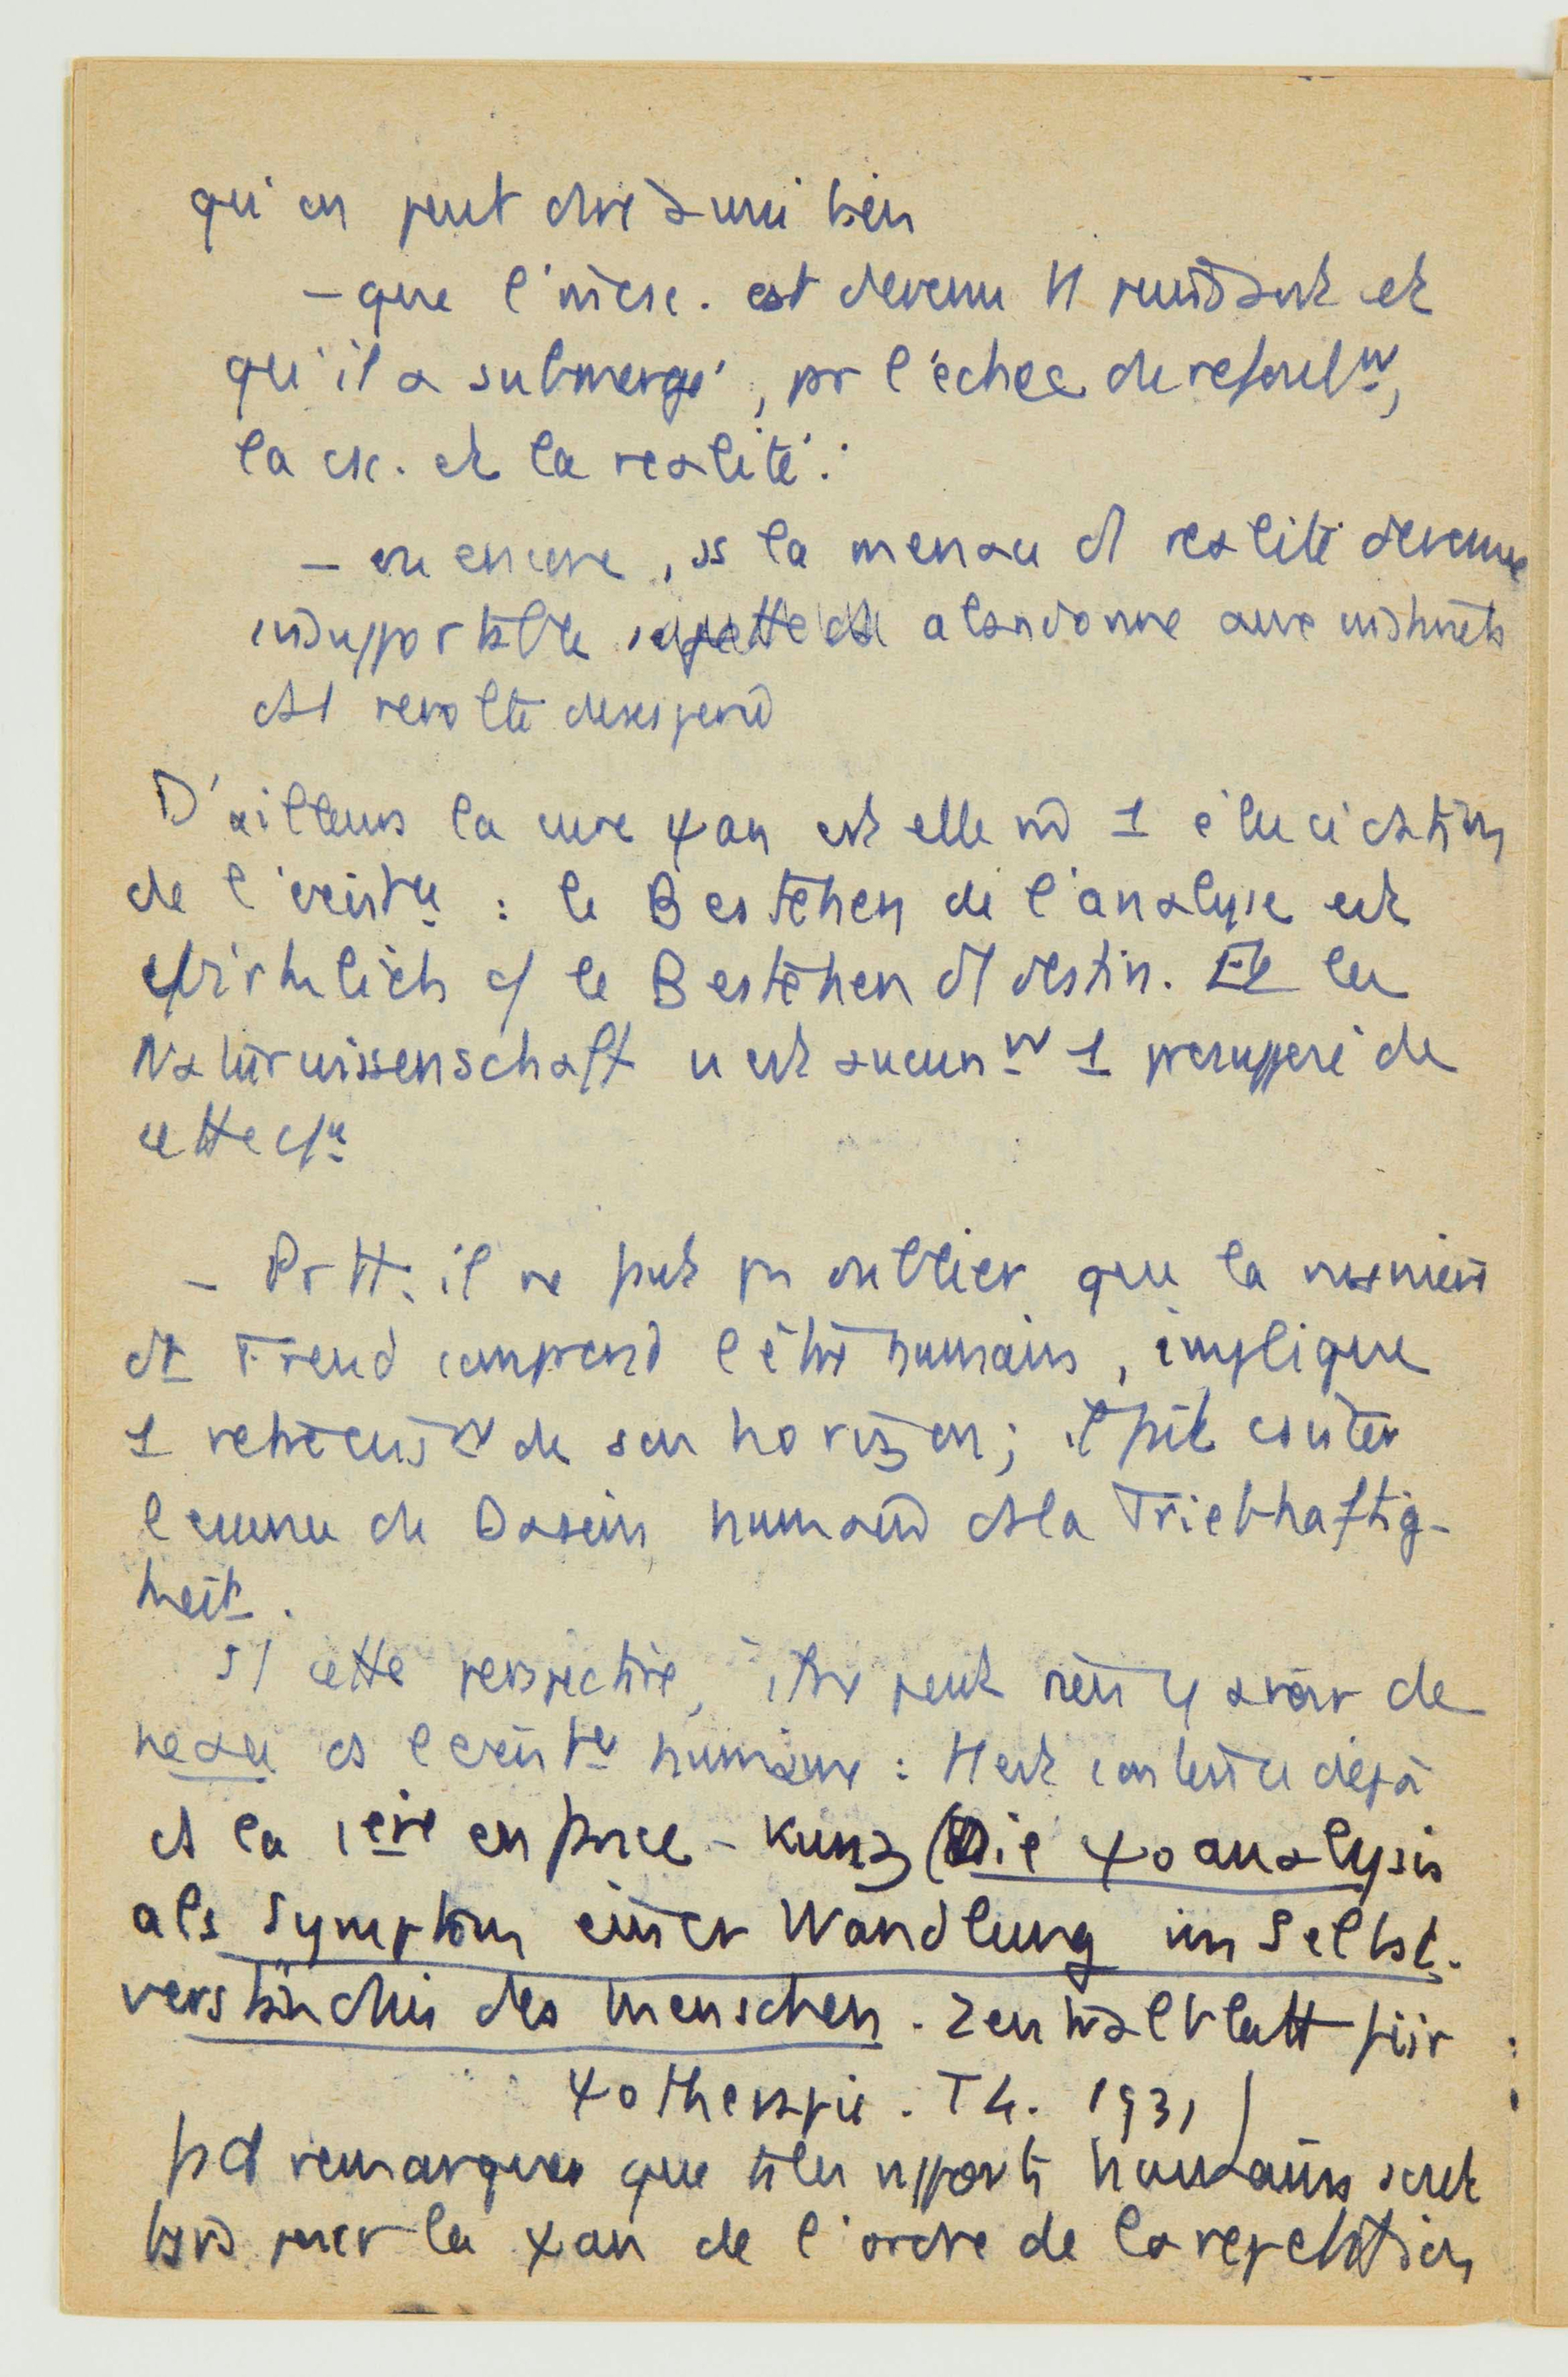 qu'on peut dire aussi bien
– que l'incsc. est devenu tt puissant et
qu'il a submergé, pr l'échec du refoult,
la csc. et la réalité :
– ou encore, ss la menace d1 réalité devenue
insupportable abandonne aux instincts
ds 1 révolte désespérée
D'ailleurs la cure ψan est elle mê 1 élucidation
de l'existce : le Bestehen de l'analyse est
wirklich c/ le Bestehen d1 destin. Et la
Naturwissenschaft n'est aucunt 1 présupposé de
cette
– Pr tt. il ne faut pas oublier que la manière
dt Freud comprend l'être humain, implique
1 rétrécisst de son horizon; il fait
l'essence du Dasein humain ds la Triebhaftig-
keit.
ds cette perspective, il ne peut rien y avoir de
nouveau ds l'existce humaine : tt est contenu déjà
ds la 1ère enfance – Kunz (Die ψoanalysis
als Symptom einer Wandlung im Selbst-
verständnis des Menschen. Zentralblatt für
ψothérapie. T4. 1931)
fait remarquer que ts les rapports humains sont
pour la ψan de l'ordre de la répétition